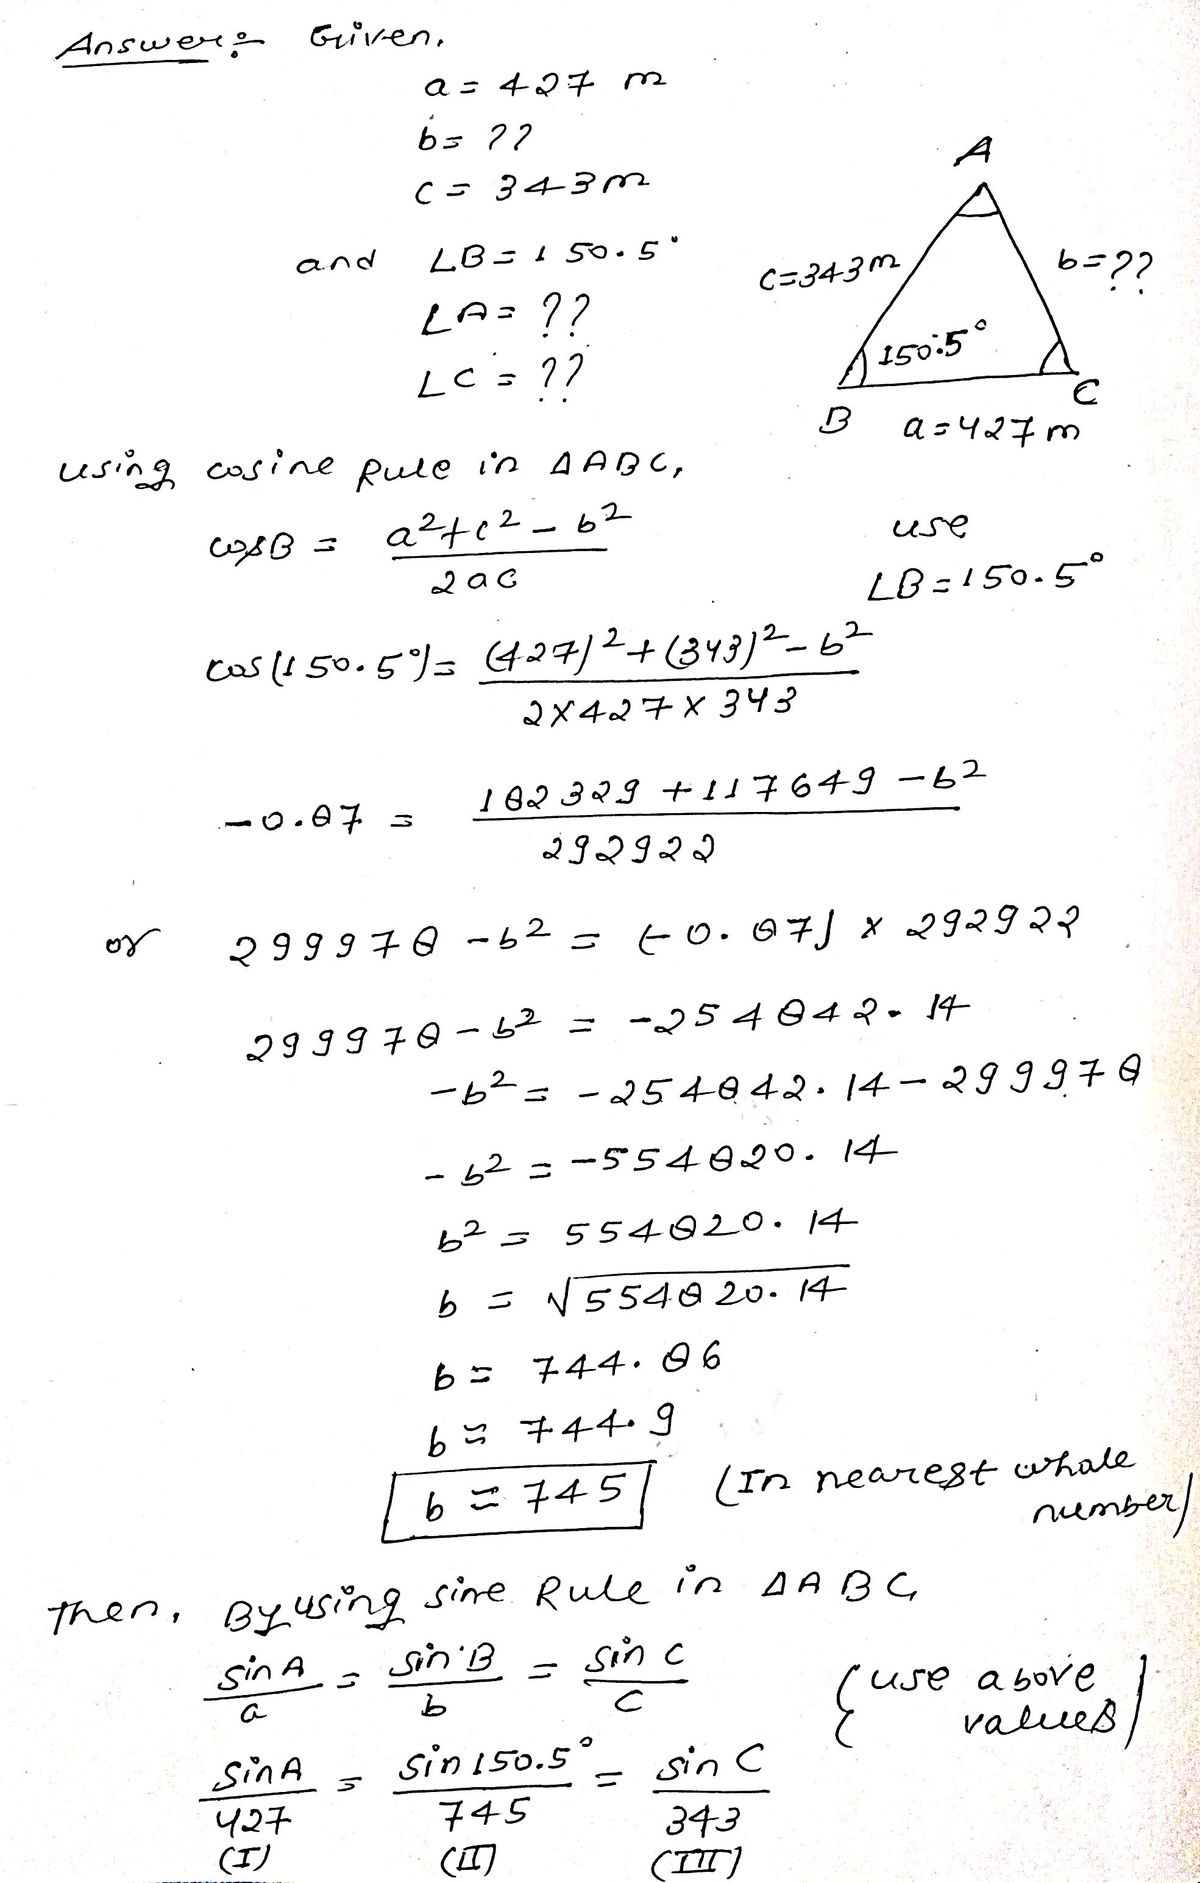 Answer:- Given,
a = 427 m
b = ??
c = 343 m
and ∠B = 150.5°
∠A = ??
∠C = ??
A
c=343 m
b=??
150.5°
B
C
a=427 m
using cosine Rule in ΔABC,
cosB = (a²+c²-b²)/(2ac)
use
∠B=150.5°
cos(150.5°) = ((427)²+(343)²-b²)/(2×427×343)
-0.87 = (182329+117649-b²)/292922
or 299978-b² = (-0.87) × 292922
299978-b² = -254842.14
-b² = -254842.14-299978
-b² = -554820.14
b² = 554820.14
b = √554820.14
b = 744.86
b ≈ 744.9
b ≈ 745 (In nearest whole
number)
Then, By using sine Rule in ΔABC,
sinA/a = sinB/b = sin C/c {use above
values}
sinA/427 = sin150.5°/745 = sin C/343
(I) (II) (III)